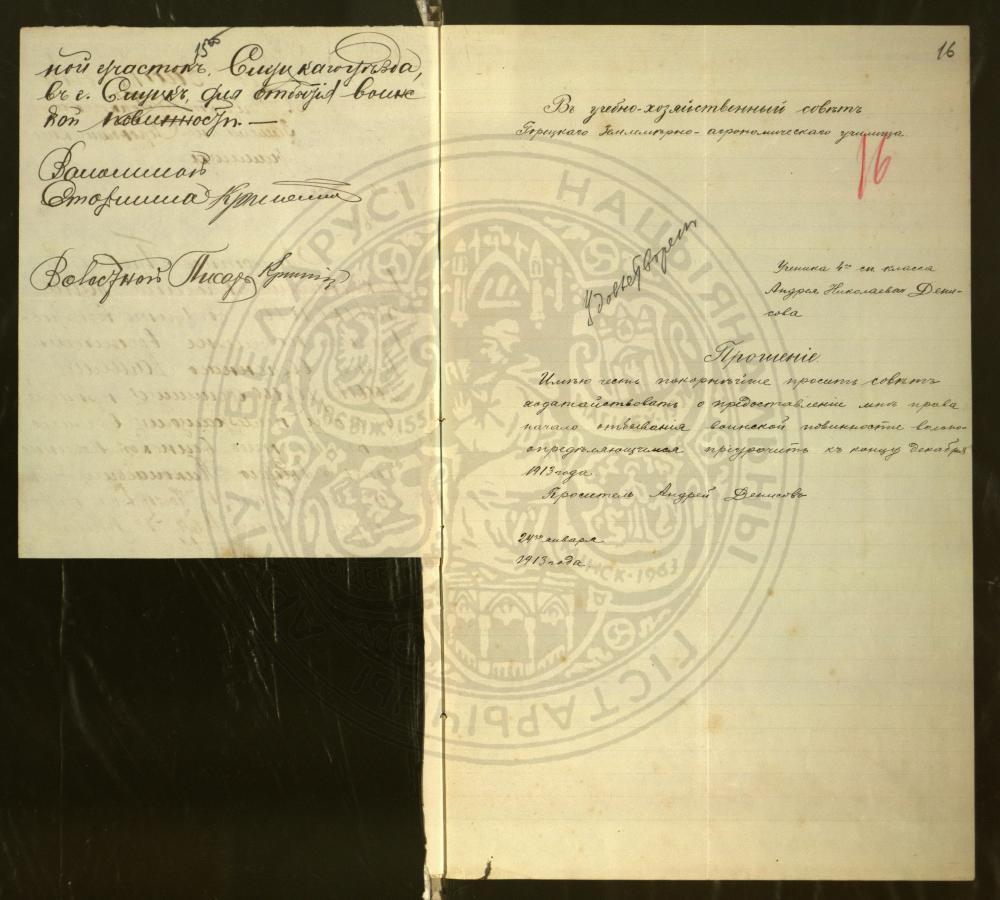 15об
ной участокъ, Слуцкаго уѣзда,
въ г. Слуцкъ, для отбытія воинс
кой повинности. —
Волостной
Старшина
Волостной Писарь
16
Въ учебно-хозяйственный совѣтъ
Горецкаго Землемѣрно-агрономическаго училища
16
Удовлетворен
Ученика 4го сп. класса
Андрея Николаевича Дени-
сова
Прошеніе
Имѣю честь покорнѣйше просить совѣтъ
ходатайствовать о предоставленіе мнѣ права
начало отбыванія воинской повинности вольно-
опредѣляющимся пріурочить къ концу декабря
1913 года
Проситель Андрей Денисовъ
24го января
1913 года
НАЦЫЯНАЛЬНЫ ГІСТАРЫЧНЫ АРХІЎ БЕЛАРУСІ
МІНСК·1963